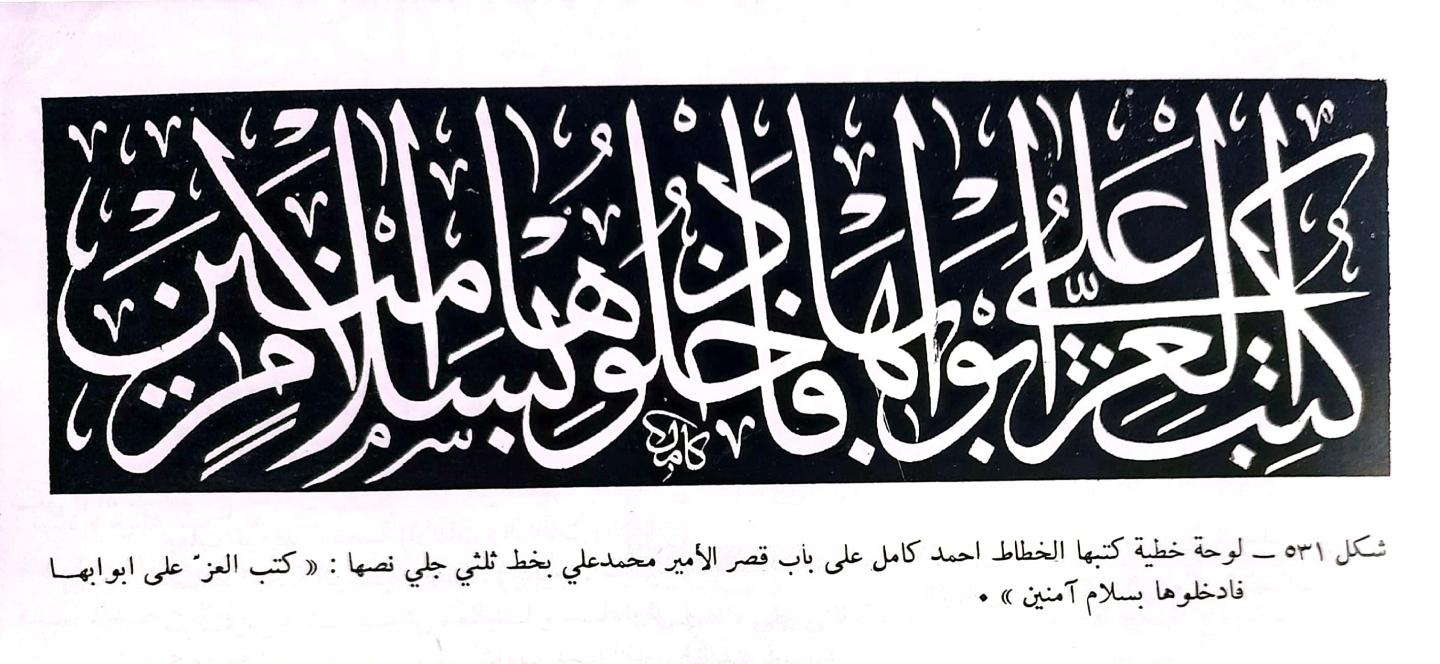 كتب العز على ابوابها فادخلوها بسلام آمنين
كامل
شكل ٥٣١ ــ لوحة خطية كتبها الخطاط احمد كامل على باب قصر الأمير محمدعلي بخط ثلثي جلي نصها : « كتب العزّ على ابوابهـا
فادخلوها بسلام آمنين » ٠